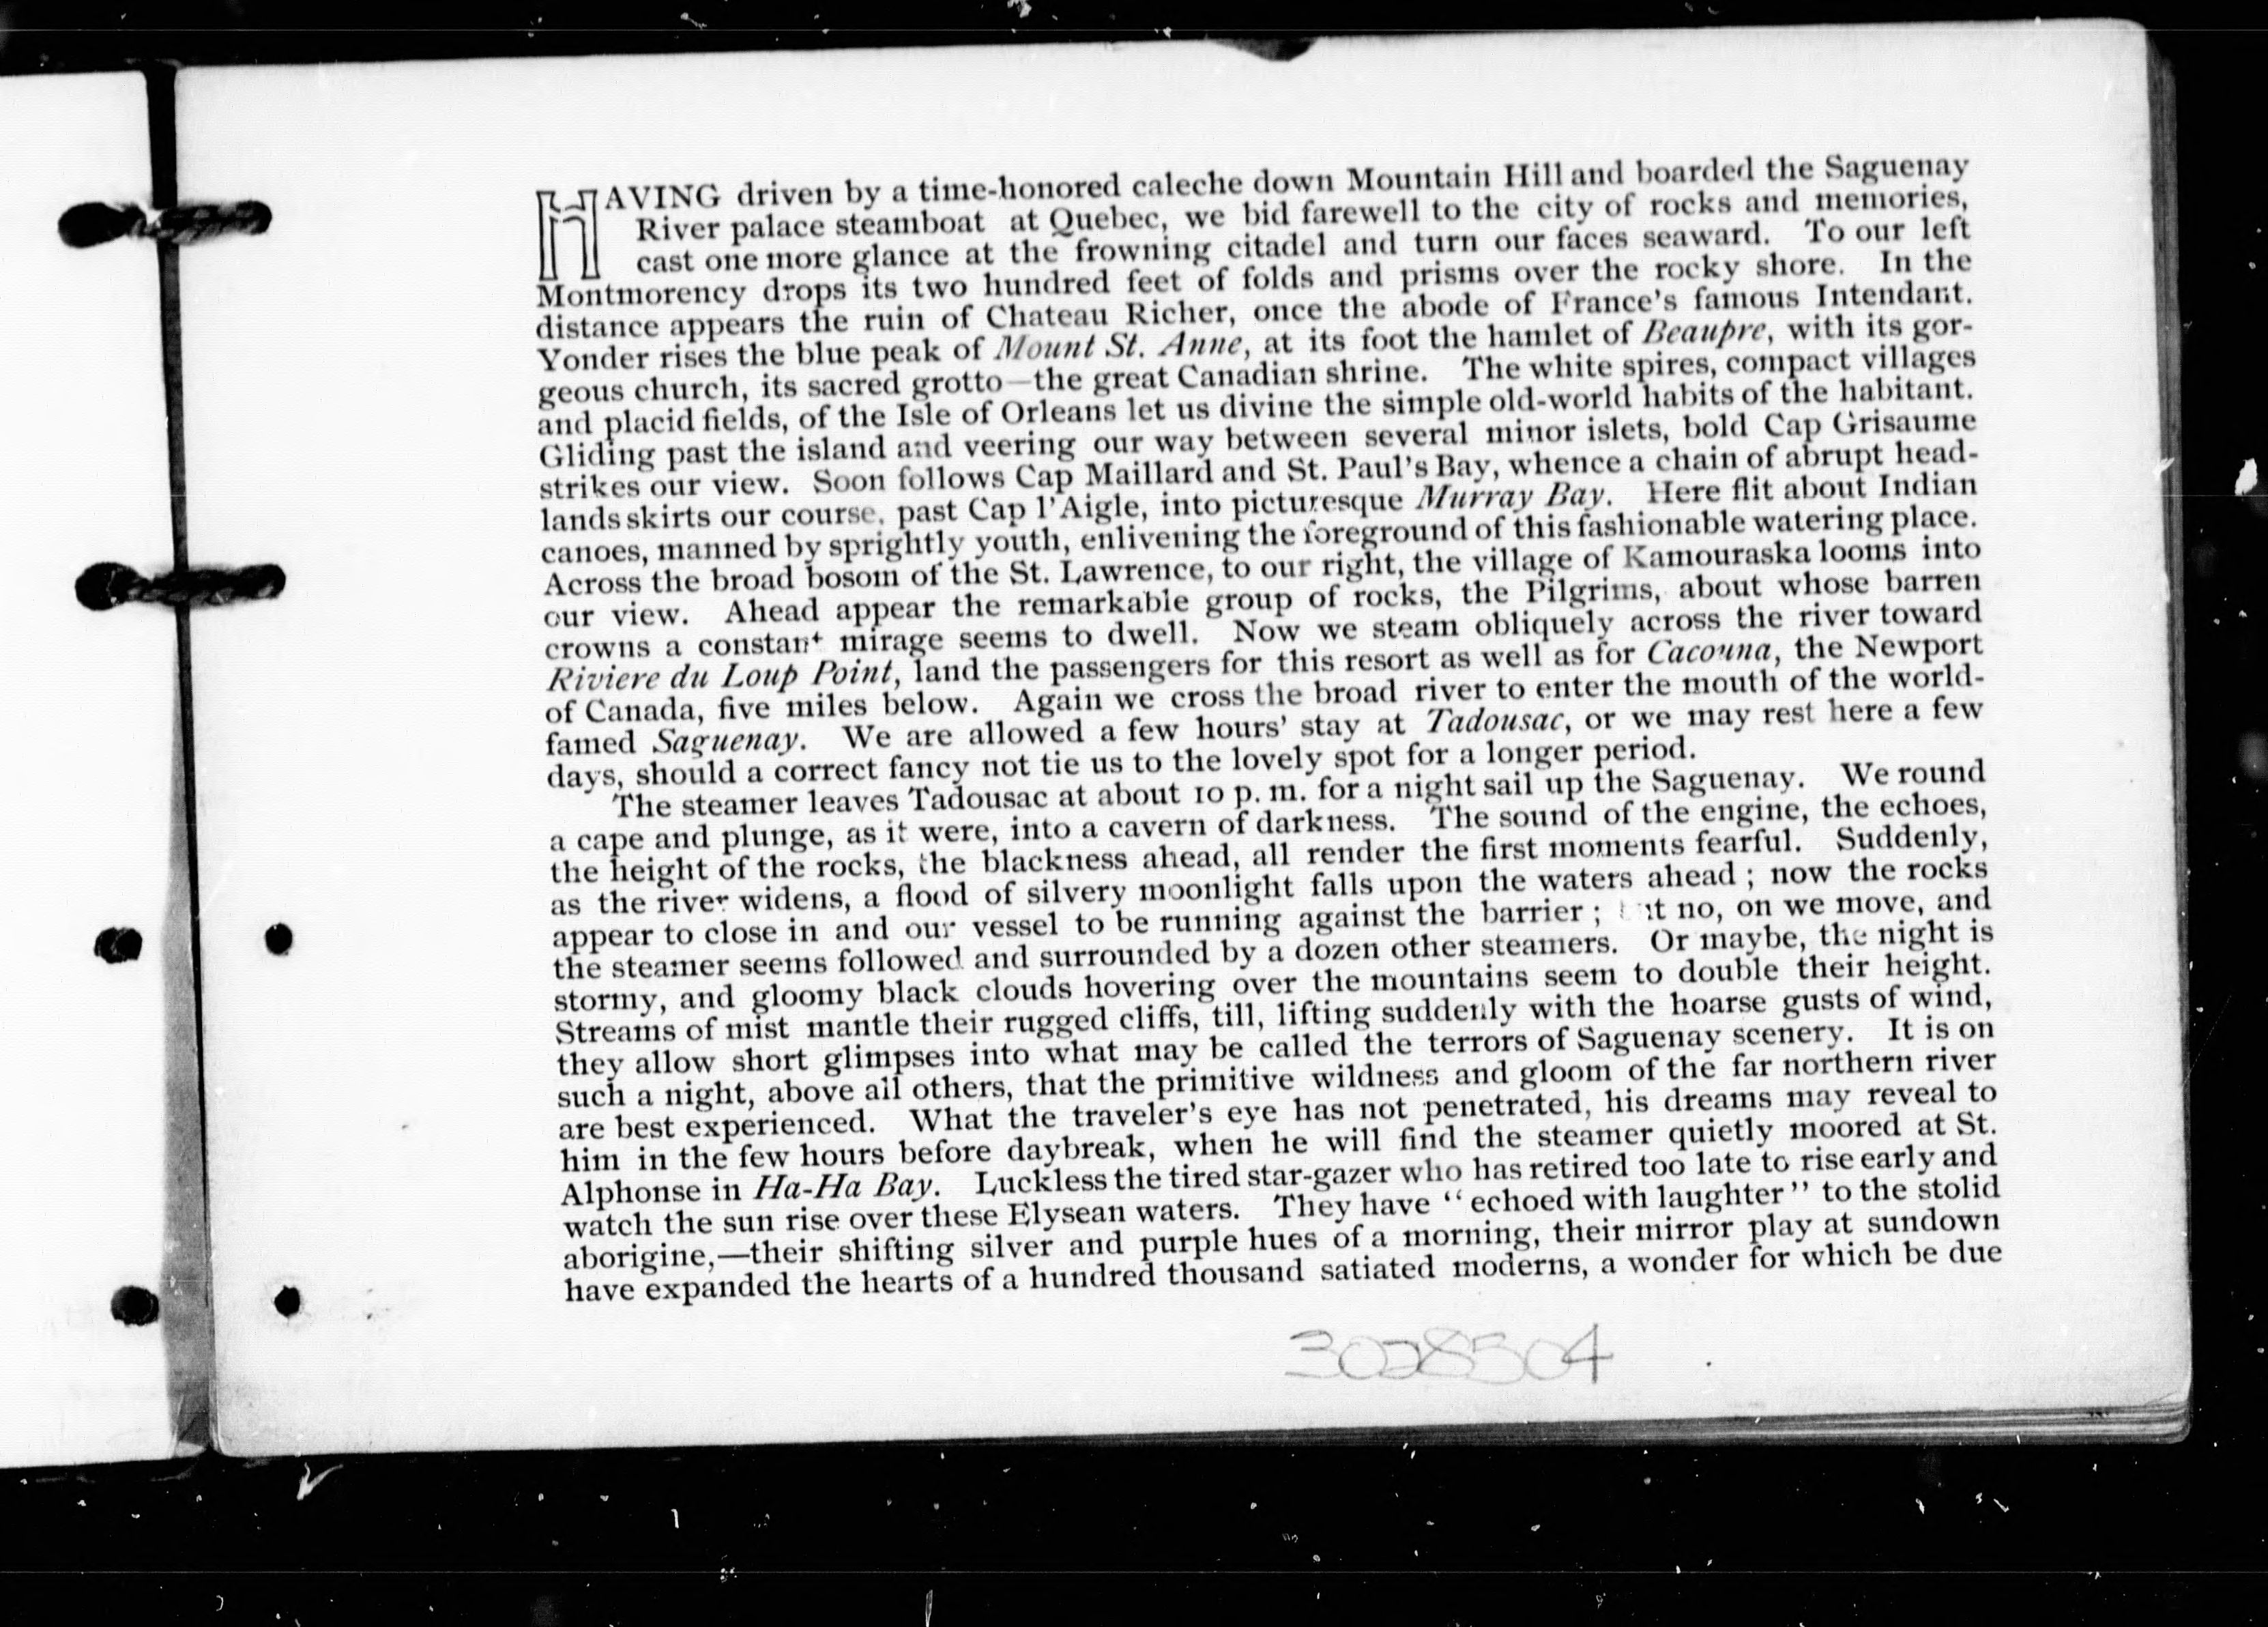 HAVING driven by a time-honored caleche down Mountain Hill and boarded the Saguenay
River palace steamboat at Quebec, we bid farewell to the city of rocks and memories,
cast one more glance at the frowning citadel and turn our faces seaward. To our left
Montmorency drops its two hundred feet of folds and prisms over the rocky shore. In the
distance appears the ruin of Chateau Richer, once the abode of France's famous Intendant.
Yonder rises the blue peak of Mount St. Anne, at its foot the hamlet of Beaupre, with its gor-
geous church, its sacred grotto—the great Canadian shrine. The white spires, compact villages
and placid fields, of the Isle of Orleans let us divine the simple old-world habits of the habitant.
Gliding past the island and veering our way between several minor islets, bold Cap Grisaume
strikes our view. Soon follows Cap Maillard and St. Paul's Bay, whence a chain of abrupt head-
lands skirts our course, past Cap l'Aigle, into picturesque Murray Bay. Here flit about Indian
canoes, manned by sprightly youth, enlivening the foreground of this fashionable watering place.
Across the broad bosom of the St. Lawrence, to our right, the village of Kamouraska looms into
our view. Ahead appear the remarkable group of rocks, the Pilgrims, about whose barren
crowns a constant mirage seems to dwell. Now we steam obliquely across the river toward
Riviere du Loup Point, land the passengers for this resort as well as for Cacouna, the Newport
of Canada, five miles below. Again we cross the broad river to enter the mouth of the world-
famed Saguenay. We are allowed a few hours' stay at Tadousac, or we may rest here a few
days, should a correct fancy not tie us to the lovely spot for a longer period.
The steamer leaves Tadousac at about 10 p. m. for a night sail up the Saguenay. We round
a cape and plunge, as it were, into a cavern of darkness. The sound of the engine, the echoes,
the height of the rocks, the blackness ahead, all render the first moments fearful. Suddenly,
as the river widens, a flood of silvery moonlight falls upon the waters ahead; now the rocks
appear to close in and our vessel to be running against the barrier; but no, on we move, and
the steamer seems followed and surrounded by a dozen other steamers. Or maybe, the night is
stormy, and gloomy black clouds hovering over the mountains seem to double their height.
Streams of mist mantle their rugged cliffs, till, lifting suddenly with the hoarse gusts of wind,
they allow short glimpses into what may be called the terrors of Saguenay scenery. It is on
such a night, above all others, that the primitive wildness and gloom of the far northern river
are best experienced. What the traveler's eye has not penetrated, his dreams may reveal to
him in the few hours before daybreak, when he will find the steamer quietly moored at St.
Alphonse in Ha-Ha Bay. Luckless the tired star-gazer who has retired too late to rise early and
watch the sun rise over these Elysean waters. They have "echoed with laughter" to the stolid
aborigine,—their shifting silver and purple hues of a morning, their mirror play at sundown
have expanded the hearts of a hundred thousand satiated moderns, a wonder for which be due
3028504